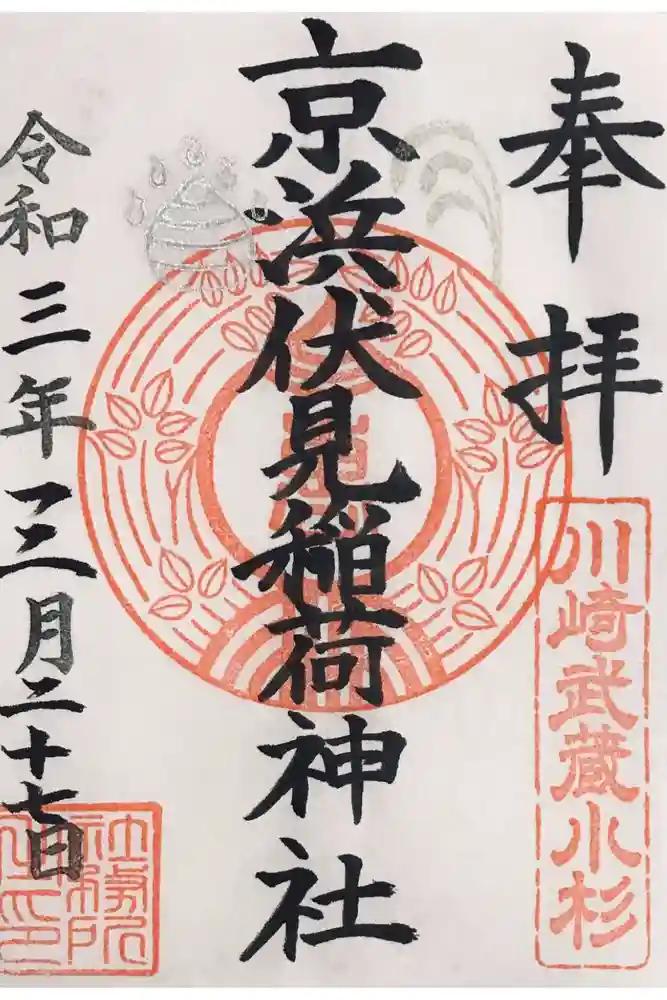 奉拝
川崎武蔵小杉
京浜伏見稲荷神社
令和三年三月二十七日
社務所
之印